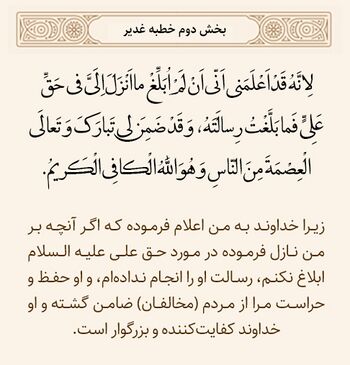 بخش دوم خطبه غدیر
لِاَنَّهُ قَدْ اَعْلَمَنى اَنّى اَنْ لَمْ اُبَلِّغْ ما اَنْزَلَ اِلَىَّ فى حَقِّ
عَلِىٍّ فَما بَلَّغْتُ رِسالَتَهُ، وَ قَدْ ضَمِنَ لى تَبارَکَ وَ تَعالَى
الْعِصْمَةَ مِنَ النّاسِ وَ هُوَ اللهُ الْکافِى الْکَریمُ.
زیرا خداوند به من اعلام فرموده که اگر آنچه بر
من نازل فرموده در مورد حق علی علیه السلام
ابلاغ نکنم، رسالت او را انجام نداده‌ام، و او حفظ و
حراست مرا از مردم (مخالفان) ضامن گشته و او
خداوند کفایت‌کننده و بزرگوار است.